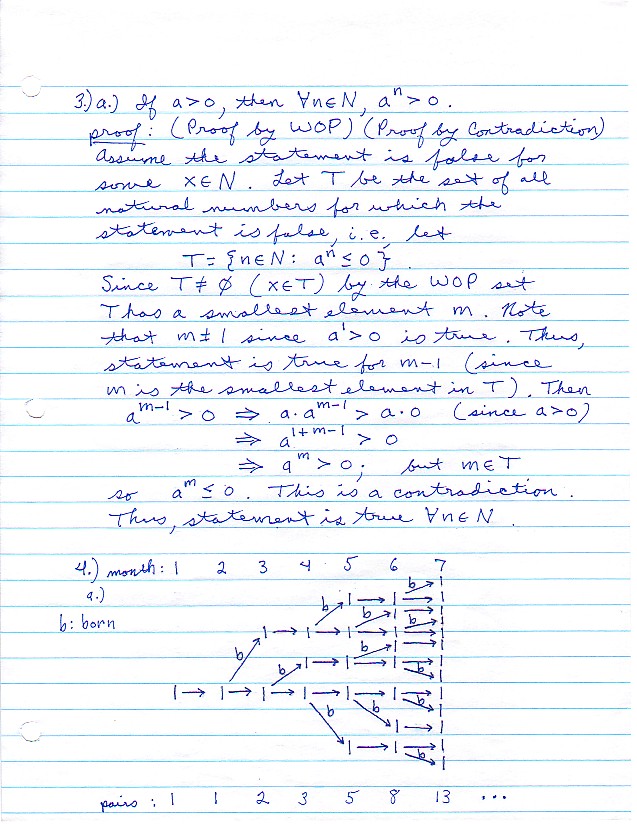 3.) a.) If a>0, then ∀n∈N, aⁿ>0.
proof: (Proof by WOP) (Proof by Contradiction)
Assume the statement is false for
some x∈N. Let T be the set of all
natural numbers for which the
statement is false, i.e. let
T= {n∈N: aⁿ≤0}.
Since T≠∅ (x∈T) by the WOP set
T has a smallest element m. Note
that m≠1 since a¹>0 is true. Thus,
statement is true for m-1 (since
m is the smallest element in T). Then
aᵐ⁻¹>0 ⇒ a·aᵐ⁻¹ > a·0 (since a>0)
⇒ a¹⁺ᵐ⁻¹ > 0
⇒ aᵐ > 0; but m∈T
so aᵐ≤0. This is a contradiction.
Thus, statement is true ∀n∈N.
4.) month: 1 2 3 4 5 6 7
a.)
b: born
b b b b b b b b b b b b
pairs: 1 1 2 3 5 8 13 ...